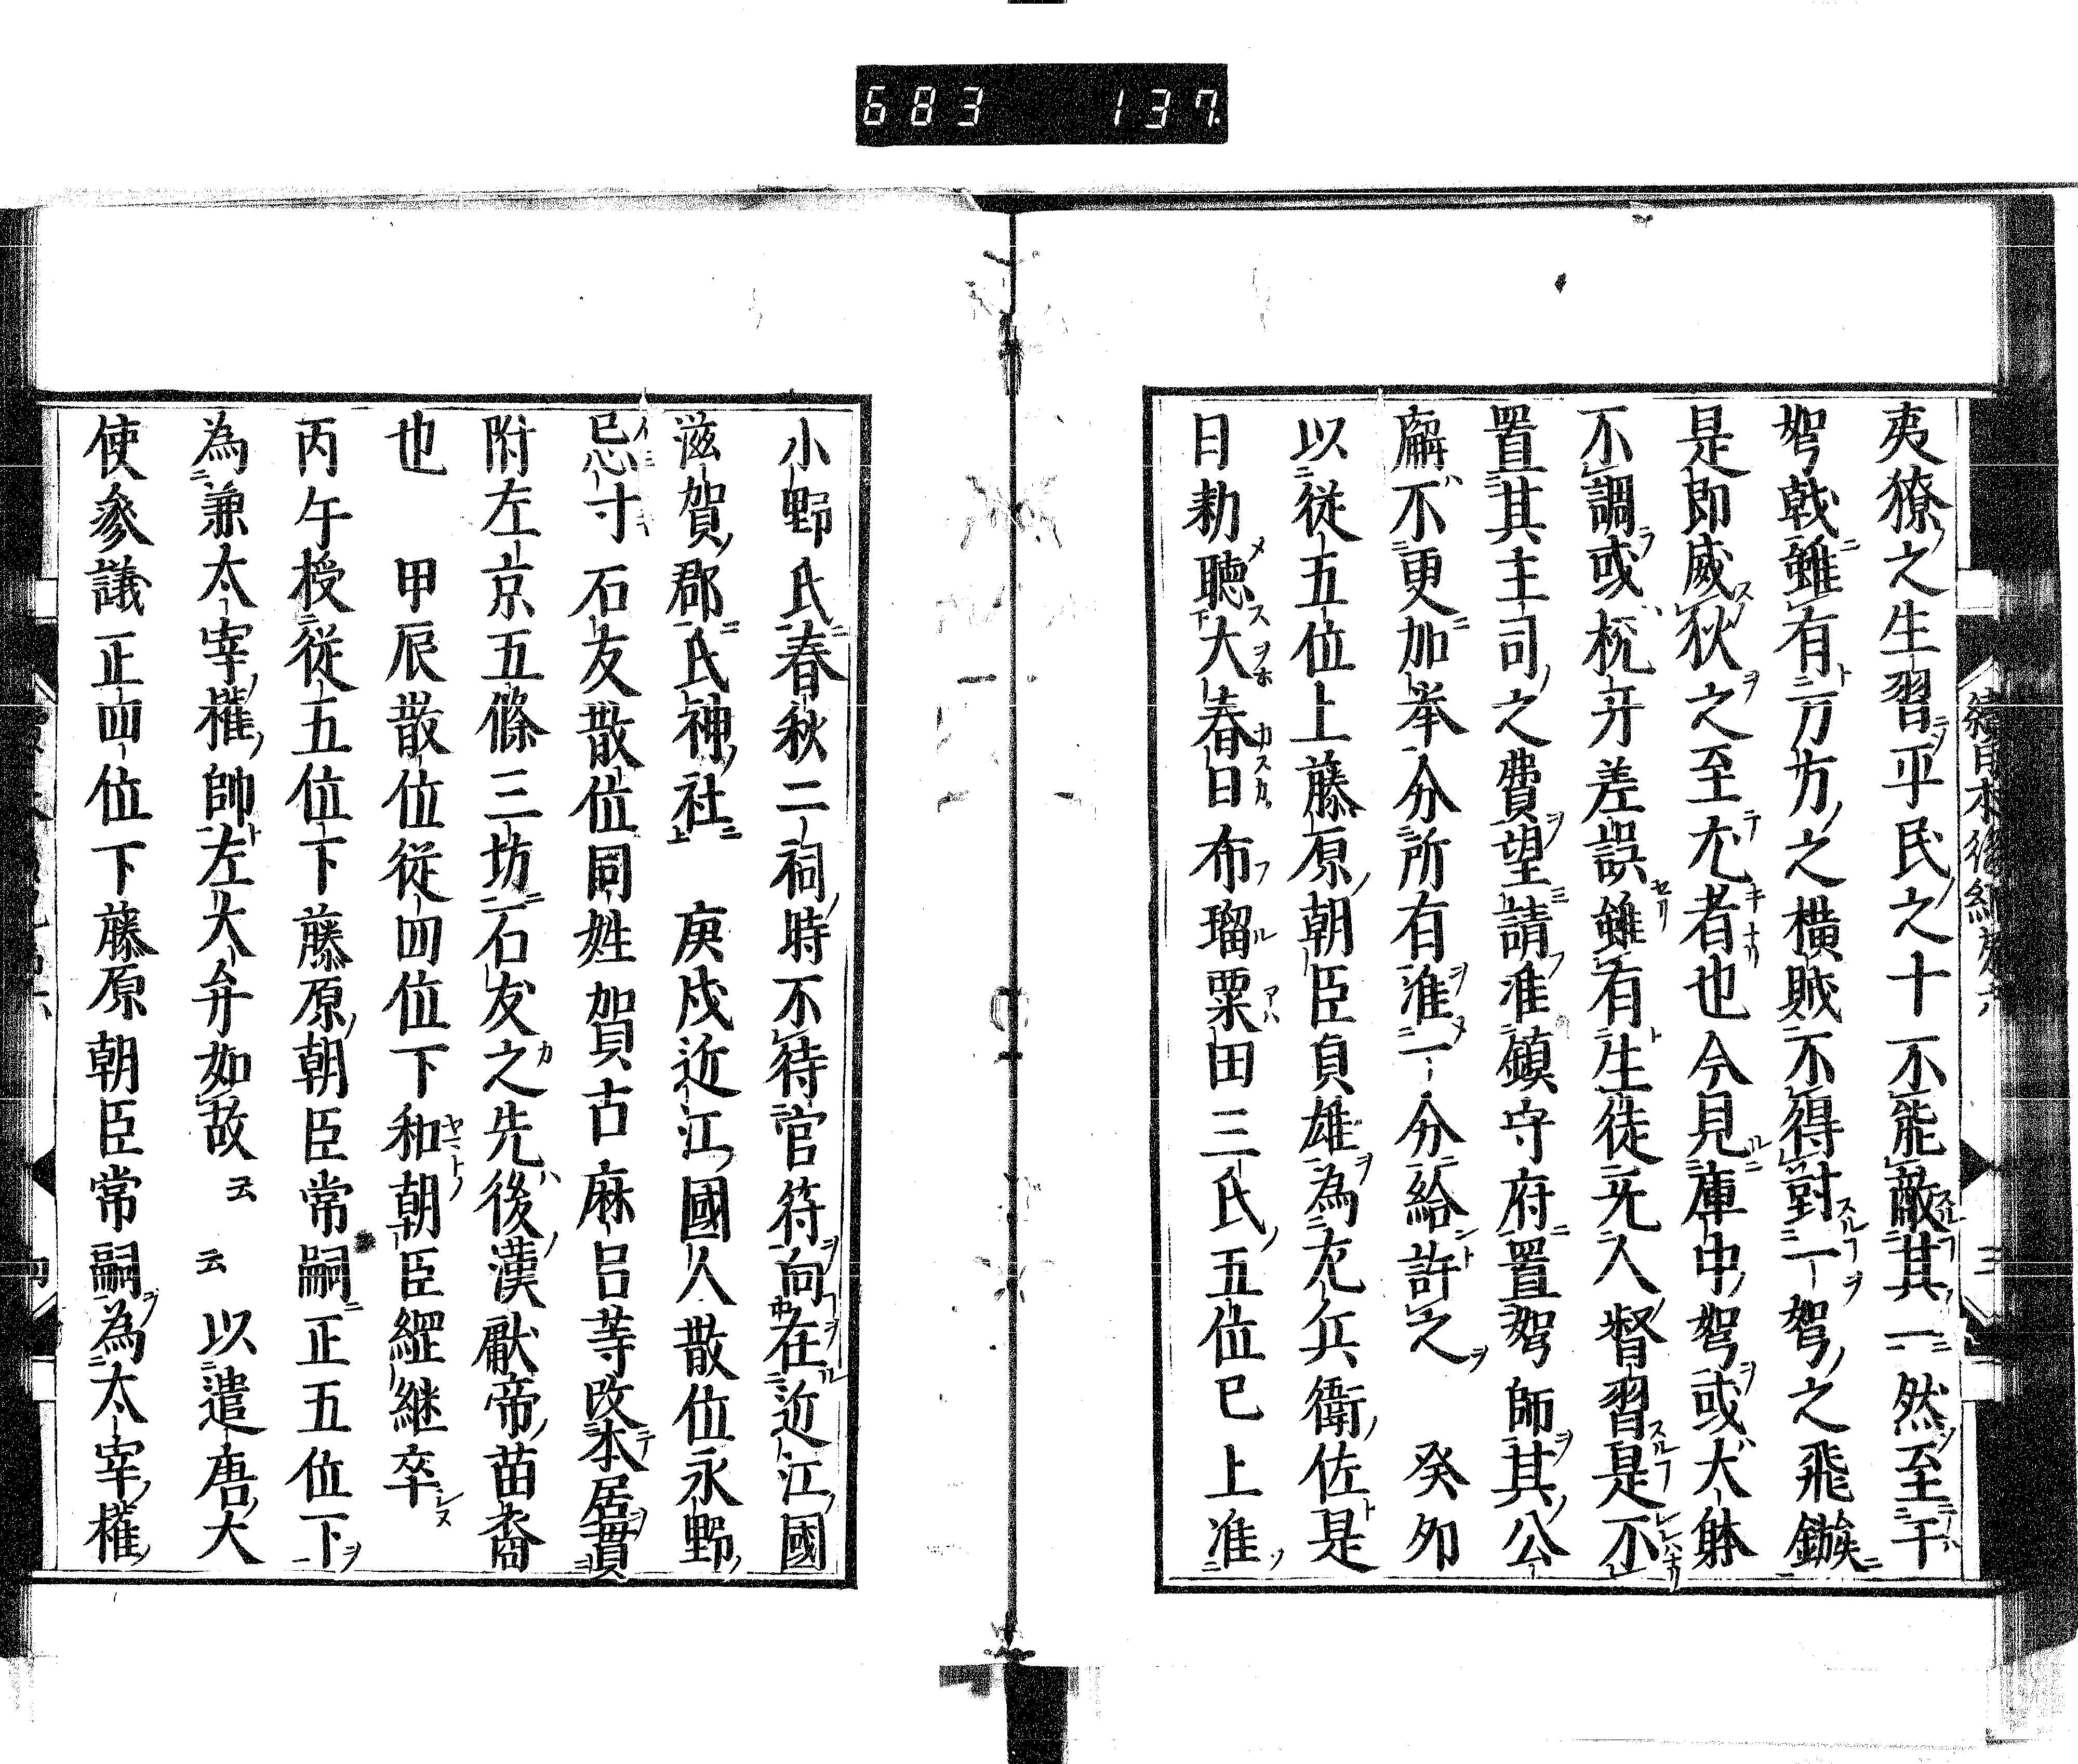 683 137
夷獠之生習平民之十不能敵其一然至于
弩戟雖有万方之横賊不得對一弩之飛鏃
是即威狄之至尤者也今見庫中弩或大躰
不調或枕牙差誤雖有生徒无人督習是不
置其主司之費望請准鎮守府置弩師其公
廨不更加挙分所有准一分給許之 癸夘
以従五位上藤原朝臣負雄為左兵衛佐是
日勑聴大春日布瑠粟田三氏五位已上准
小野氏春秋二祠時不待官符向在近江國
滋賀郡氏神社 庚戌近江國人散位永野
忌寸石友散位同姓賀古麻呂等改本居貫
附左京五條三坊石友之先後漢献帝苗裔
也 甲辰散位従四位下和朝臣縄継卒
丙午授従五位下藤原朝臣常嗣正五位下
為兼太宰權帥左大弁如故云云以遣唐大
使參議正四位下藤原朝臣常嗣為太宰權